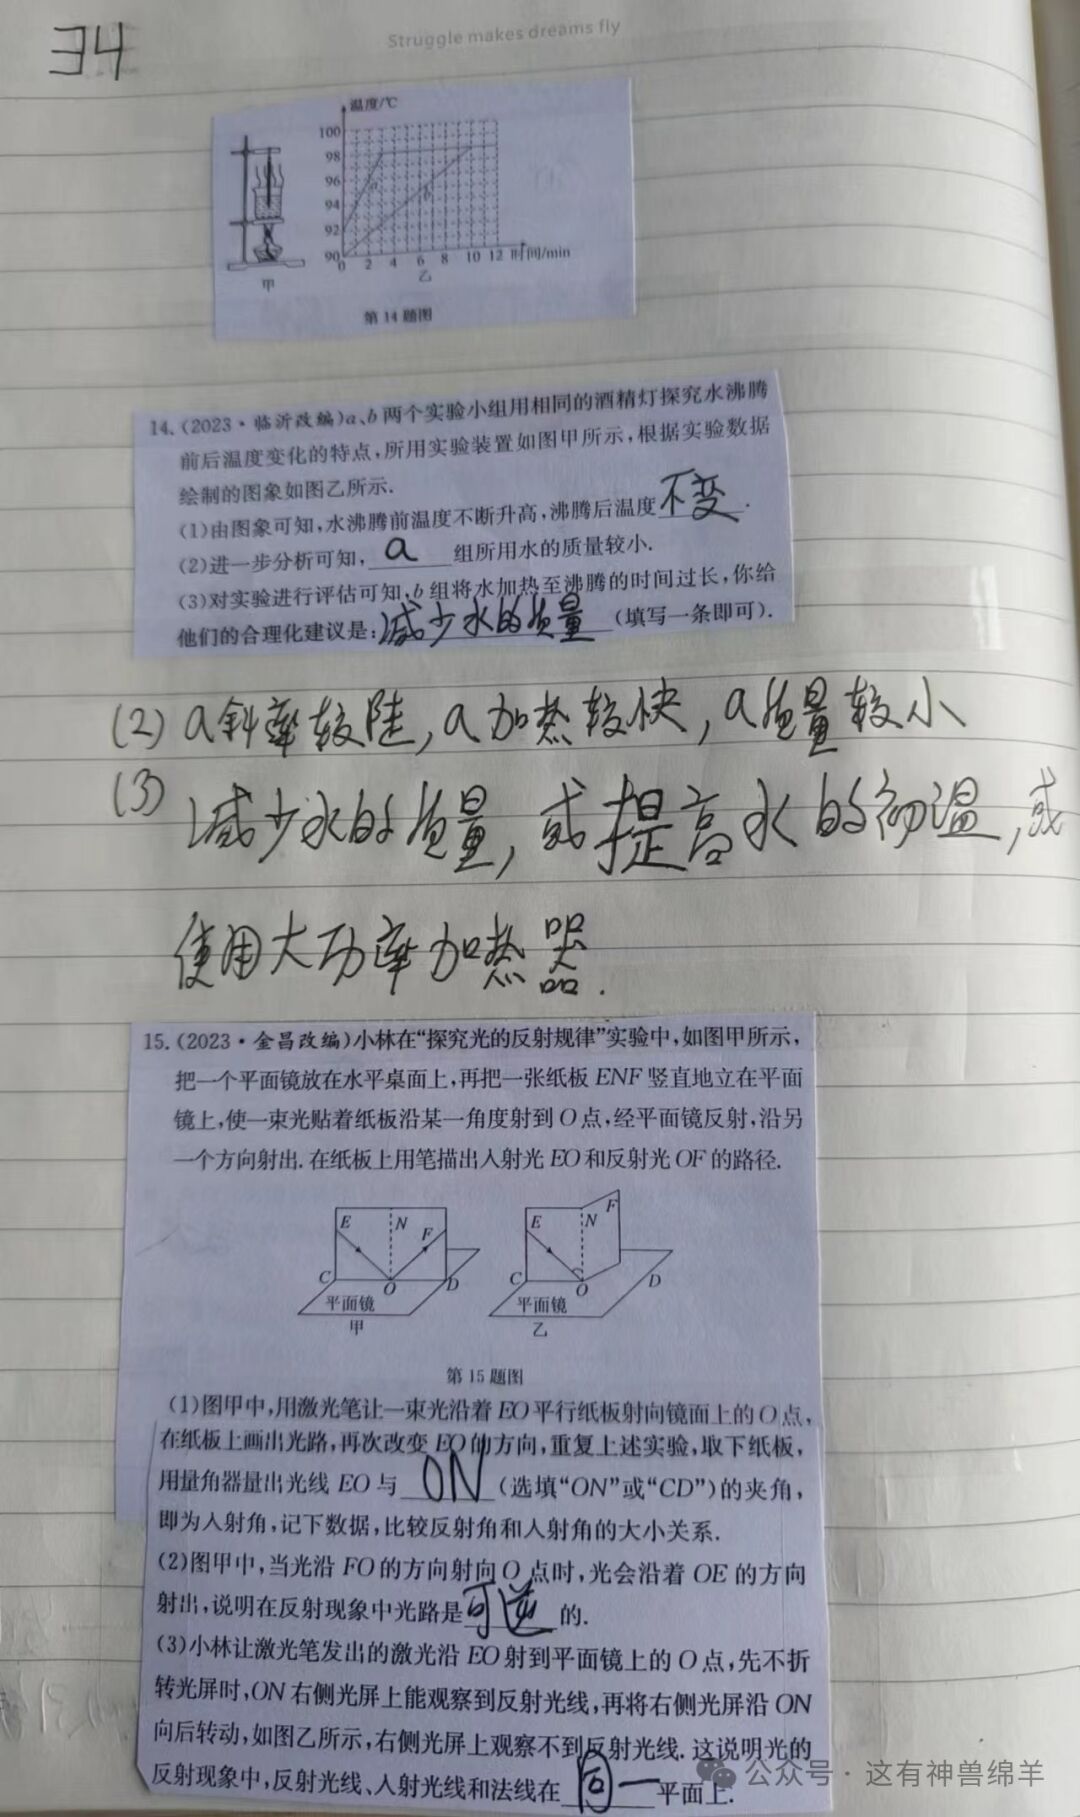 34
Struggle makes dreams fly
温度/℃
100
98
96
94
92
90
0 2 4 6 8 10 12 时间/min
a
b
甲
乙
第14题图
14.(2023·临沂改编)a、b两个实验小组用相同的酒精灯探究水沸腾
前后温度变化的特点,所用实验装置如图甲所示,根据实验数据
绘制的图象如图乙所示.
(1)由图象可知,水沸腾前温度不断升高,沸腾后温度不变.
(2)进一步分析可知,a组所用水的质量较小.
(3)对实验进行评估可知,b组将水加热至沸腾的时间过长,你给
他们的合理化建议是:减少水的质量(填写一条即可).
(2) a斜率较陡,a加热较快,a质量较小
(3) 减少水的质量,或提高水的初温,或
使用大功率加热器.
15.(2023·金昌改编)小林在“探究光的反射规律”实验中,如图甲所示,
把一个平面镜放在水平桌面上,再把一张纸板ENF竖直地立在平面
镜上,使一束光贴着纸板沿某一角度射到O点,经平面镜反射,沿另
一个方向射出.在纸板上用笔描出入射光EO和反射光OF的路径.
E N F
C O D
平面镜
甲
E N F
C O D
平面镜
乙
第15题图
(1)图甲中,用激光笔让一束光沿着EO平行纸板射向镜面上的O点,
在纸板上画出光路,再次改变EO的方向,重复上述实验,取下纸板,
用量角器量出光线EO与ON(选填“ON”或“CD”)的夹角,
即为入射角,记下数据,比较反射角和入射角的大小关系.
(2)图甲中,当光沿FO的方向射向O点时,光会沿着OE的方向
射出,说明在反射现象中光路是可逆的.
(3)小林让激光笔发出的激光沿EO射到平面镜上的O点,先不折
转光屏时,ON右侧光屏上能观察到反射光线,再将右侧光屏沿ON
向后转动,如图乙所示,右侧光屏上观察不到反射光线.这说明光的
反射现象中,反射光线、入射光线和法线在同一平面上.
公众号·这有神兽绵羊